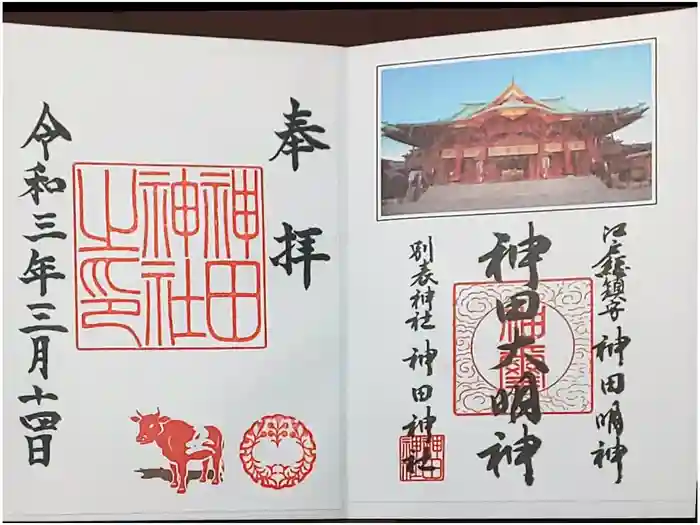 江戸総鎮守 神田明神
神田大明神
別表神社 神田神社
奉拝
神田
神社
之印
令和三年三月十四日